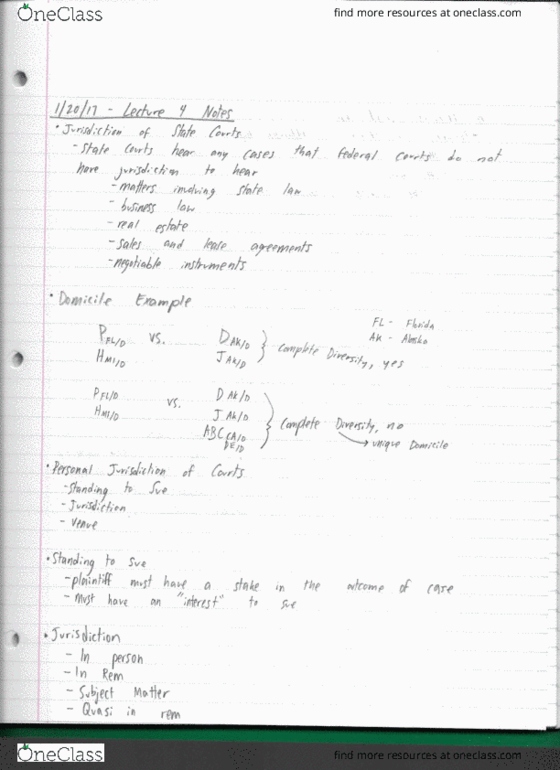 OneClass
find more resources at oneclass.com
1/20/17 - Lecture 4 Notes
• Jurisdiction of State Courts
- State Courts hear any cases that federal courts do not
have jurisdiction to hear
- matters involving state law
- business law
- real estate
- sales and lease agreements
- negotiable instruments
• Domicile Example
FL - Florida
AK - Alaska
P FL/D vs. D AK/D
H MI/D J AK/D } Complete Diversity, yes
P FL/D vs. D AK/D
H MI/D J AK/D } Complete Diversity, no
ABC CA/D
DE/D
→ unique Domicile
• Personal Jurisdiction of Courts
- Standing to Sue
- Jurisdiction
- Venue
• Standing to Sue
- plaintiff must have a stake in the outcome of case
- Must have an "interest" to sue
• Jurisdiction
- In person
- In Rem
- Subject Matter
- Quasi in rem
OneClass
find more resources at oneclass.com